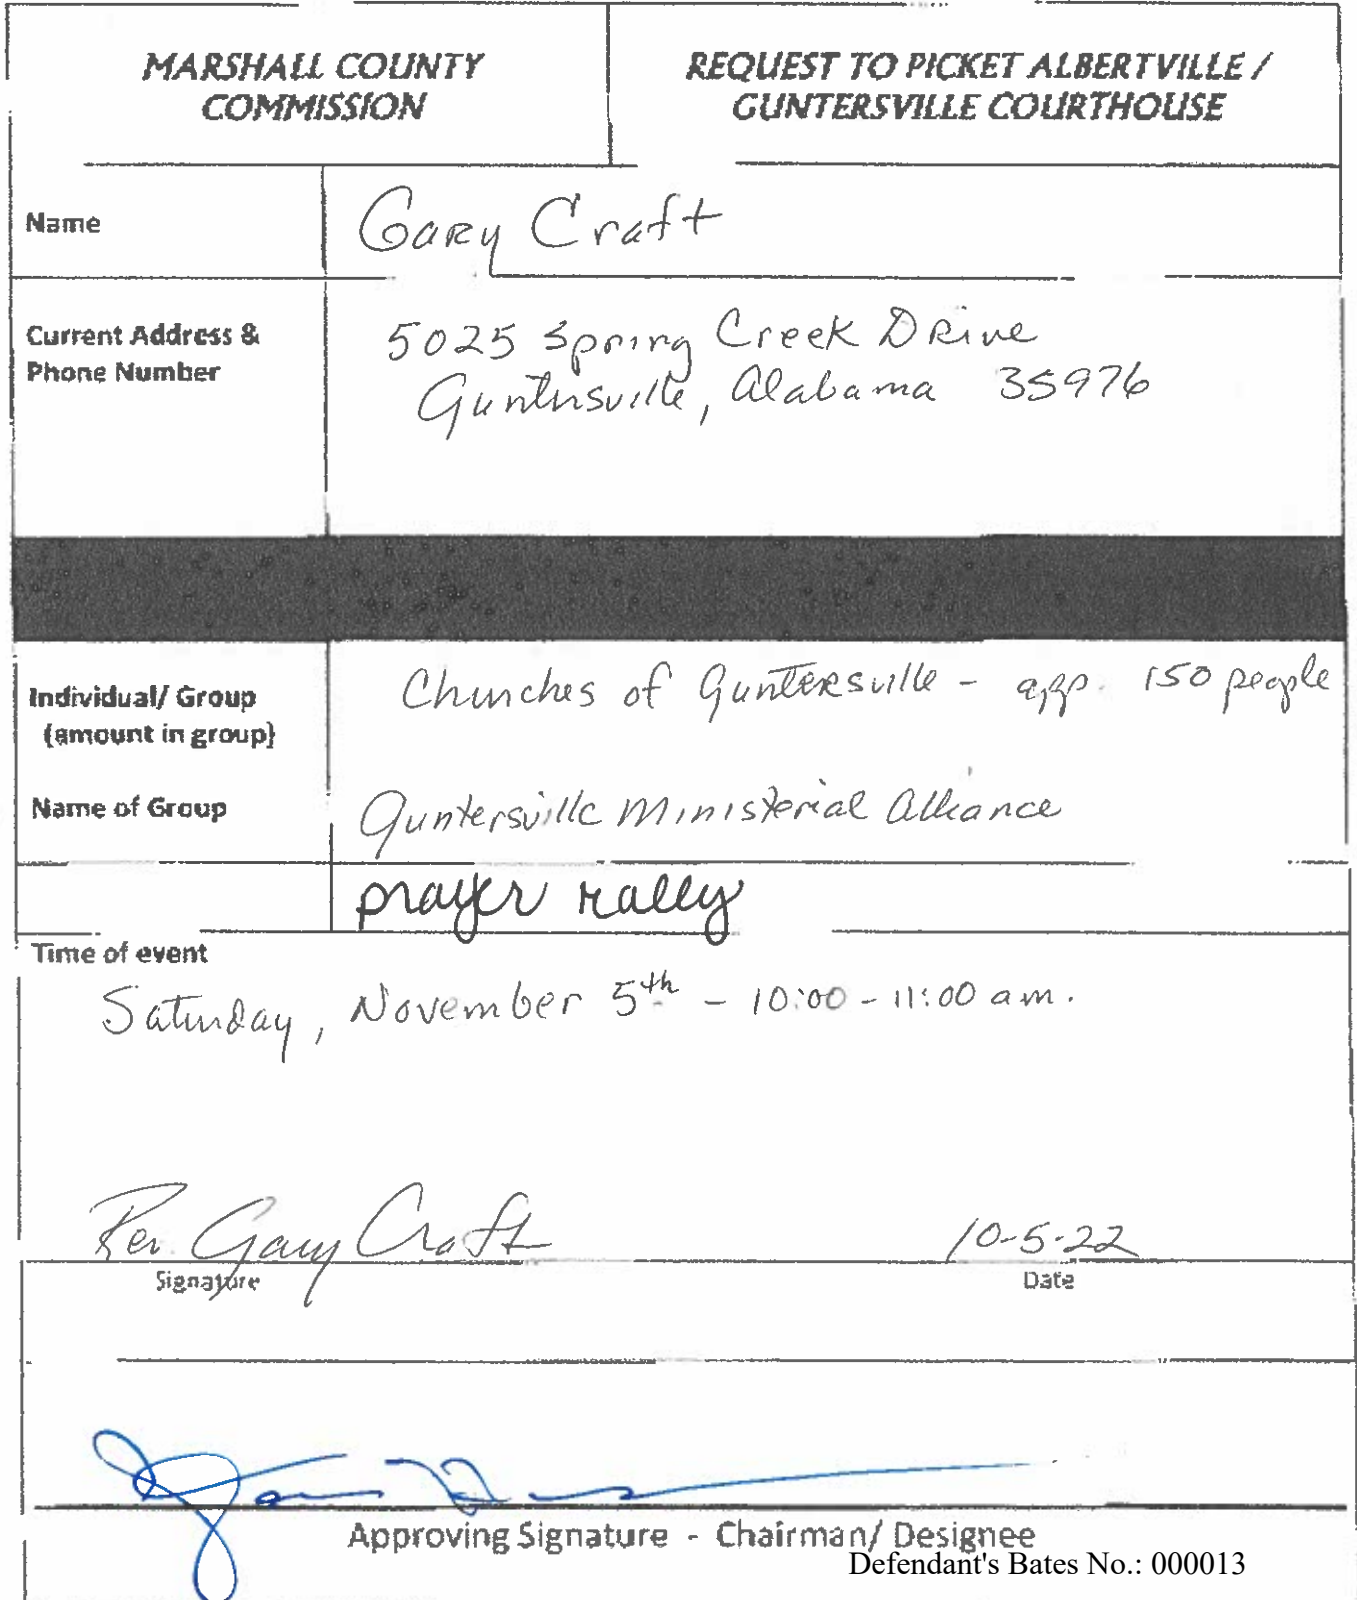 MARSHALL COUNTY
COMMISSION
REQUEST TO PICKET ALBERTVILLE /
GUNTERSVILLE COURTHOUSE
Name
Gary Craft
Current Address &
Phone Number
5025 Spring Creek Drive
Guntersville, Alabama 35976
Individual/ Group
(amount in group)
Churches of Guntersville - app. 150 people
Name of Group
Guntersville Ministerial Alliance
prayer rally
Time of event
Saturday, November 5th - 10:00 - 11:00 am.
Rev. Gary Craft
10-5-22
Signature
Date
Approving Signature - Chairman/ Designee
Defendant's Bates No.: 000013